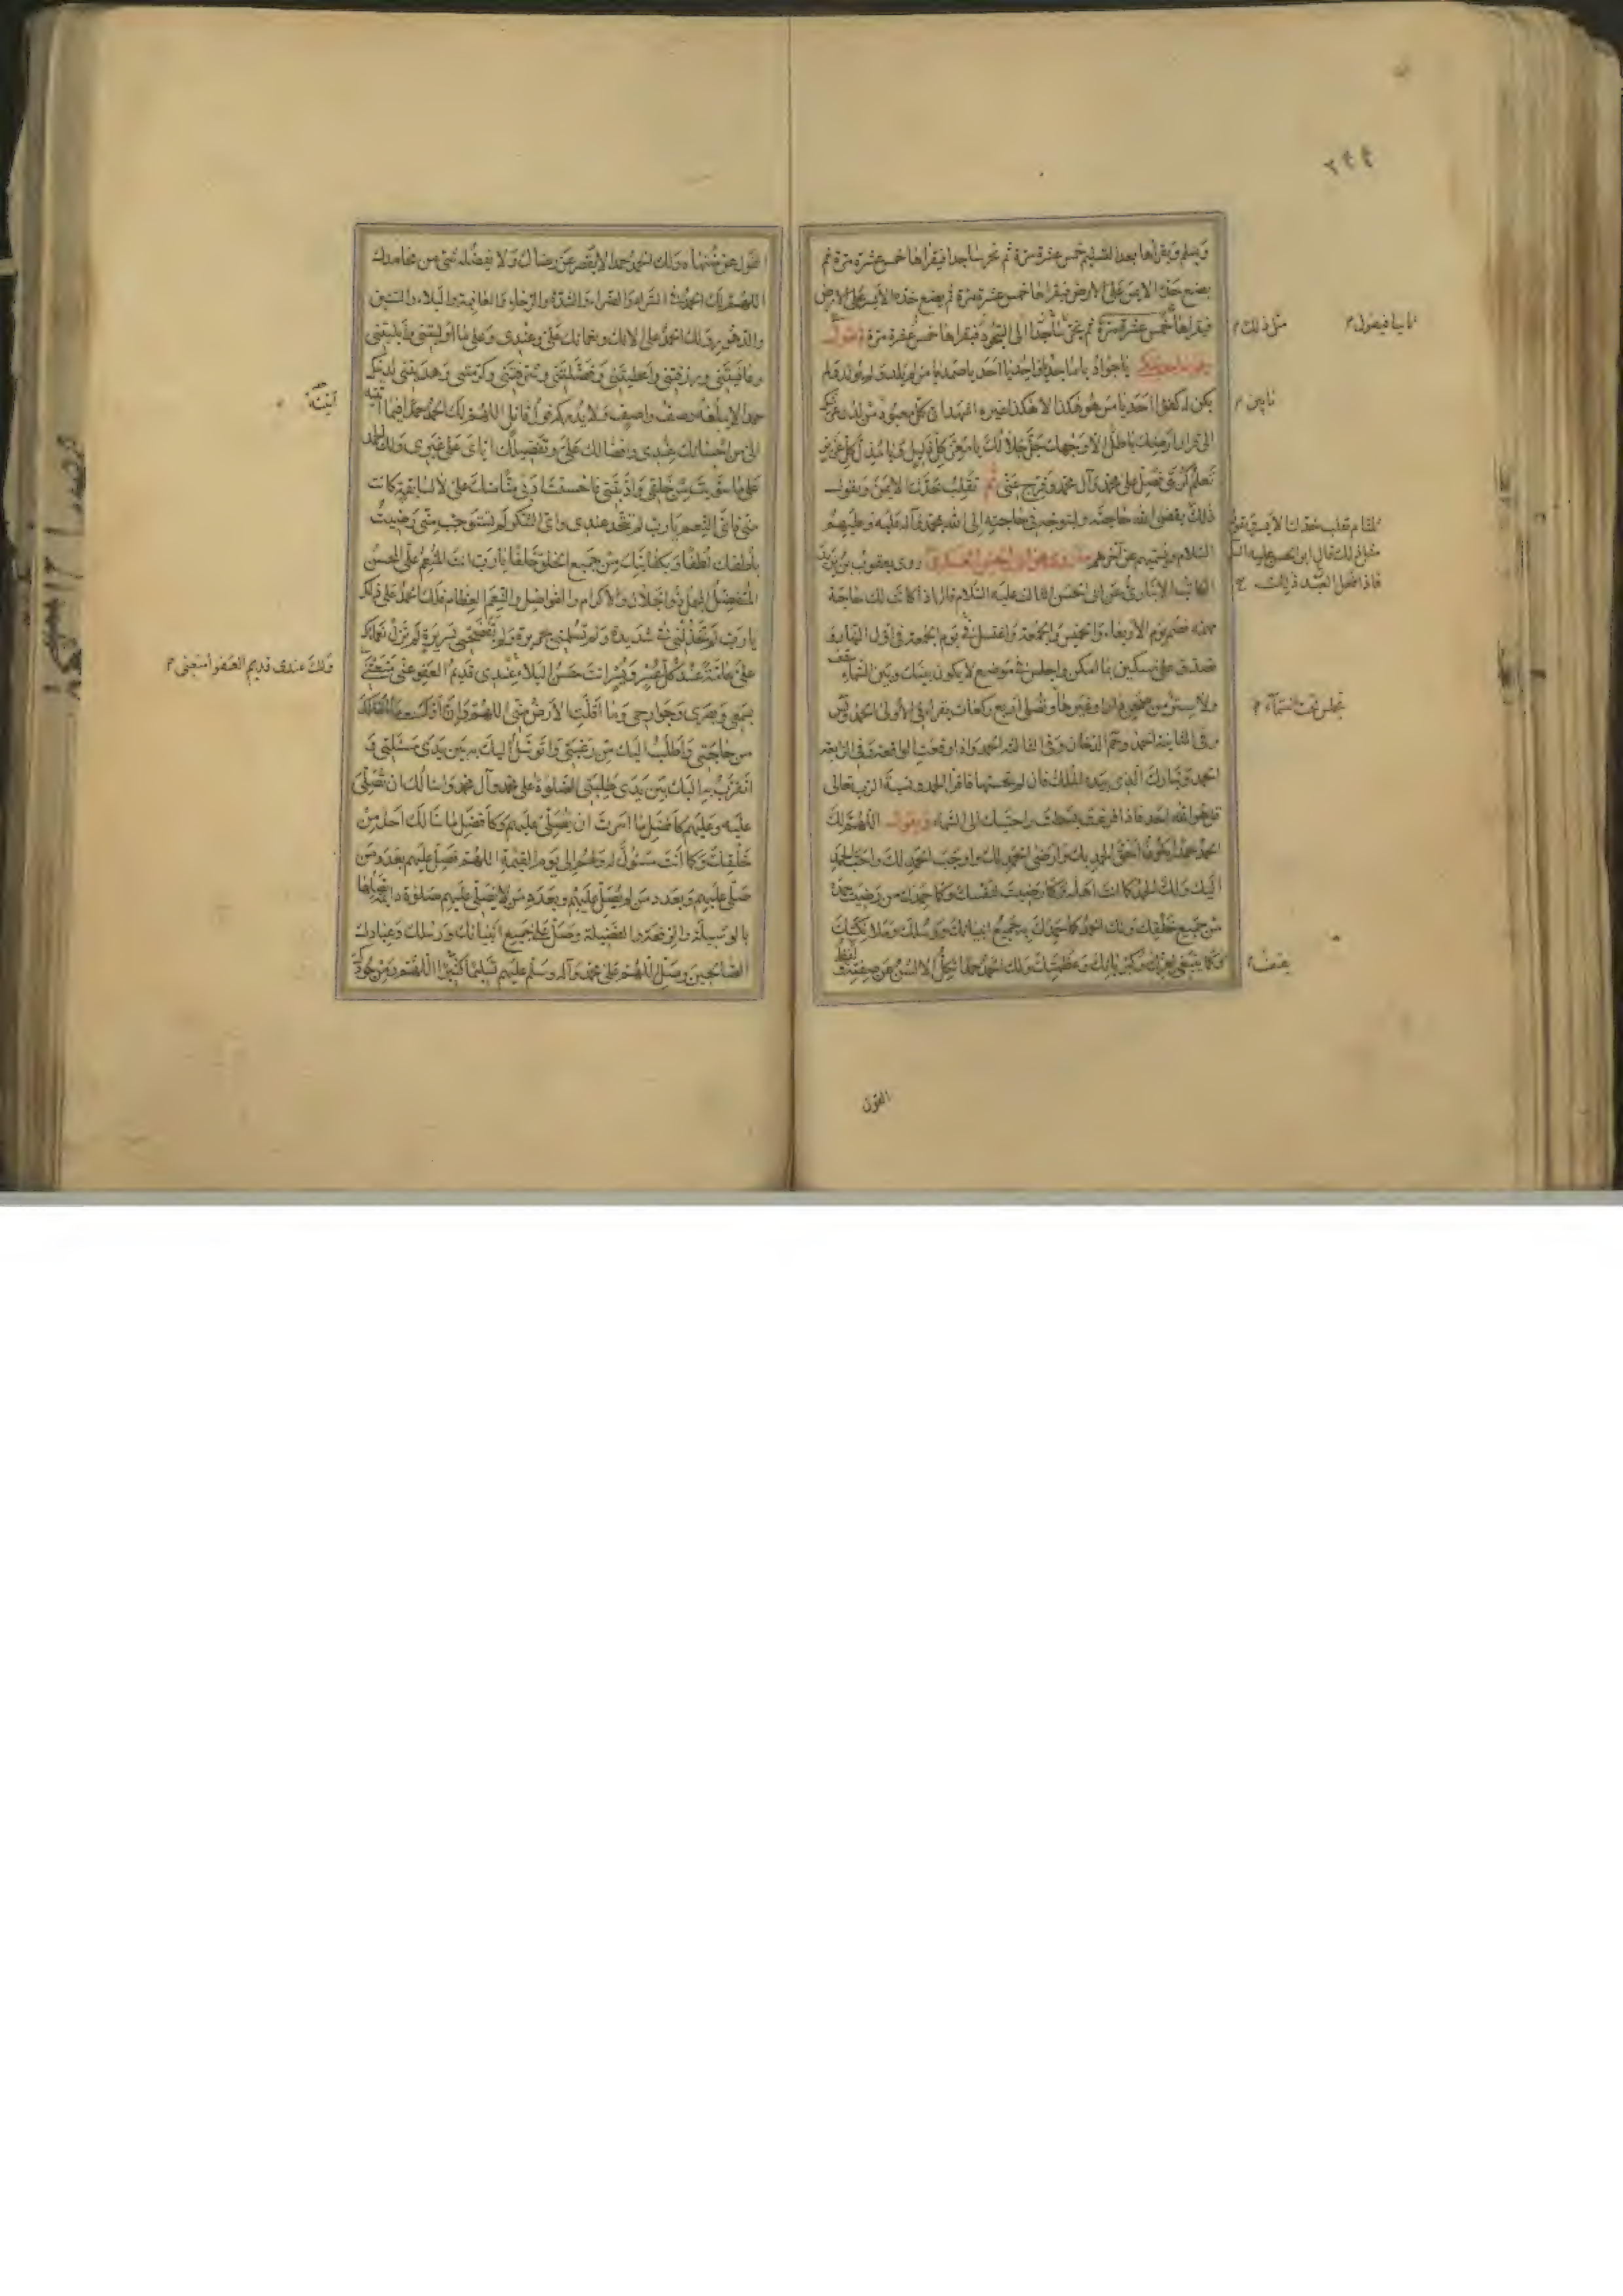 ٢٩٩
ويسلم ويقرأها بعد التسليم خمس عشرة مرة ثم يخر ساجدا فيقرأها خمس عشرة مرة ثم
يضع خده الايمن على الارض فيقرأها خمس عشرة مرة ثم يضع خده الايسر على الارض
فيقرأها خمس عشرة مرة ثم يخر ساجدا الى السجود فيقرأها خمس عشرة مرة
يا جواد يا ماجد يا واحد يا احد يا صمد يا من لم يلد ولم يولد ولم
يكن له كفوا احد يا من هو هكذا لا هكذا غيره اشهد ان كل معبود من لدن عرشك
الى قرار ارضك باطل الا وجهك جل جلالك يا معز كل ذليل ويا مذل كل عزيز
تعلم كربتي فصل على محمد وآل محمد وفرج عني ثم تقلب خدك الايمن وتقول
ذلك يقضي الله حاجته وليتوجه في حاجته الى الله بمحمد وآله عليه وعليهم
السلام ويسميهم عن آخرهم روى يعقوب بن يزيد
الكاتب الانباري عن ابي الحسن الثالث عليه السلام قال اذا كانت لك حاجة
مهمة فصم يوم الاربعاء والخميس والجمعة واغتسل في يوم الجمعة في اول النهار
وتصدق على مسكين بما امكن واجلس في موضع لا يكون بينك وبين السماء سقف
ولا ستر من صحن دار او غيرها وتصلي اربع ركعات يقرأ في الاولى الحمد ويس
وفي الثانية الحمد وحم الدخان وفي الثالثة الحمد واذا وقعت الواقعة وفي الرابعة
الحمد وتبارك الذي بيده الملك فان لم تحسنها فاقرأ الحمد ونسبة الرب تعالى
قل هو الله احد فاذا فرغت بسطت راحتيك الى السماء وتقول اللهم لك
الحمد حمدا يكون احق الحمد بك وارضى الحمد لك واوجب الحمد لك واحب الحمد
اليك ولك الحمد كما انت اهله وكما رضيت لنفسك وكما حمدك من رضيت حمده
من جميع خلقك ولك الحمد كما حمدك به جميع انبيائك ورسلك وملائكتك
وكما ينبغي لعزك وكبريائك وعظمتك ولك الحمد حمدا تكل الالسن عن صفته ويقف
مثل ذلك
ثانيا فيقول
تجلس تحت السماء
القول
القول عن منتهاه ولك الحمد حمدا لا يقصر عن رضاك ولا يفضله شيء من محامدك
اللهم لك الحمد في السراء والضراء والشدة والرخاء والعافية والبلاء والسنين
والدهور ولك الحمد على آلائك ونعمائك علي وعندي وعلى ما اوليتني وابليتني
وعافيتني ورزقتني واعطيتني وفضلتني وشرفتني وكرمتني وهديتني لدينك
حمدا لا يبلغه وصف واصف ولا يدركه قول قائل اللهم لك الحمد حمدا فيما آتيته
الي من احسانك عندي وافضالك علي وتفضيلك اياي على غيري ولك الحمد
على ما سويت من خلقي وادبتني فاحسنت ادبي منا منك علي لا لسابقة كانت
مني فاي النعم يا رب لم تتخذ عندي واي الشكر لم تستوجب مني رضيت
بلطفك لطفا وبكفايتك من جميع الخلق خلقا يا رب انت المنعم علي المحسن
المتفضل المجمل ذو الجلال والاكرام والفواضل والنعم العظام فلك الحمد على ذلك
يا رب لم تخذلني في شديدة ولم تسلمني بجريرة ولم تفضحني بسريرة لم تزل نعماؤك
علي عامة عند كل عسر ويسر انت حسن البلاء عندي قديم العفو عني متعني
بسمعي وبصري وجوارحي وما اقلت الارض مني اللهم وان اول ما اسألك
من حاجتي واطلب اليك من رغبتي واتوسل اليك به بين يدي مسئلتي و
اتقرب به اليك بين يدي طلبتي الصلوة على محمد وآل محمد واسألك ان تصلي
عليه وعليهم كافضل ما امرت ان يصلى عليهم وكافضل ما سألك احد من
خلقك وكما انت مسئول له ولهم الى يوم القيمة اللهم فصل عليهم بعدد من
صلى عليهم وبعدد من لم يصل عليهم وبعدد من لا يصلي عليهم صلوة دائمة تصلها
بالوسيلة والرفعة والفضيلة وصل على جميع انبيائك ورسلك وعبادك
الصالحين وصل اللهم على محمد وآله وسلم عليهم تسليما كثيرا اللهم ومن جودك
ولك عندي قديم العفو امتعني